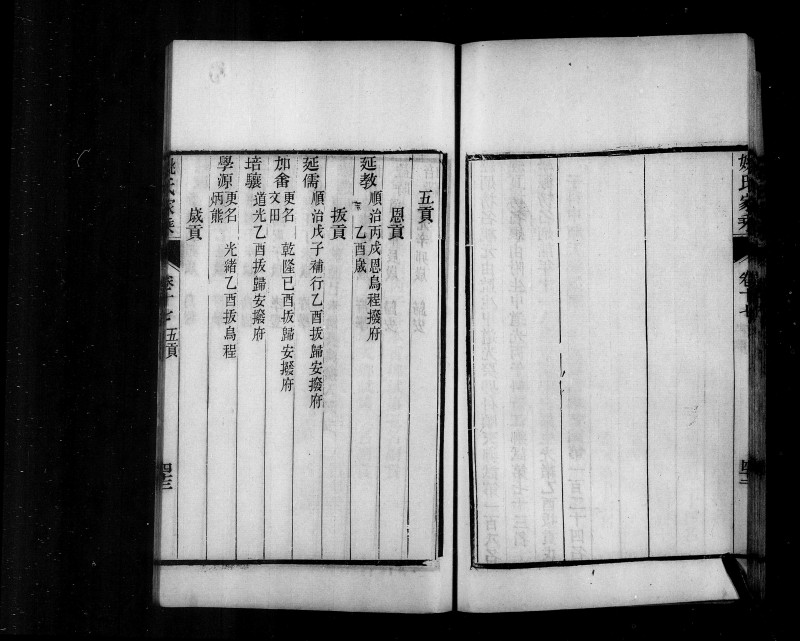 姚氏家乘
卷十七
四三
五貢
恩貢
延教 順治丙戌恩烏程撥府
乙酉歲
拔貢
延儒 順治戊子補行乙酉拔歸安撥府
加畬 更名文田 乾隆己酉拔歸安撥府
培驤 道光乙酉拔歸安撥府
學源 更名炳熊 光緒乙酉拔烏程
歲貢
姚氏家乘
卷十七 五貢
四三